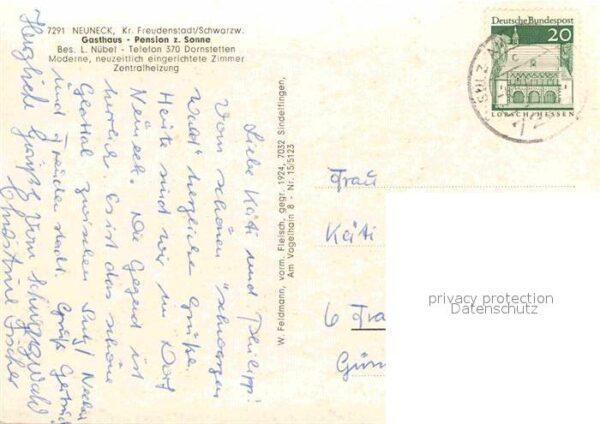 7291 NEUNECK, Kr. Freudenstadt/Schwarzw.
Gasthaus - Pension z. Sonne
Bes. L. Nübel - Telefon 370 Dornstetten
Moderne, neuzeitlich eingerichtete Zimmer
Zentralheizung
Liebe Käti und Philipp!
Vom schönen "schwarzen
Wald" herzliche Grüße.
Heute sind wir im Dorf
Neuneck. Die Gegend ist
Es ist das schöne
zwischen Sulz/Neckar
und Freudenstadt. Gruß Gertrud
Herzliche Grüße vom Schwarzwald
Christine Fischer
W. Feldmann, vorm. Fleisch, gegr. 1924, 7032 Sindelfingen,
Am Vogelhain 8 - Nr. 15/5123
Deutsche Bundespost
20
LORSCH/HESSEN
Frau
Käti
6 Fra
Gün
privacy protection
Datenschutz